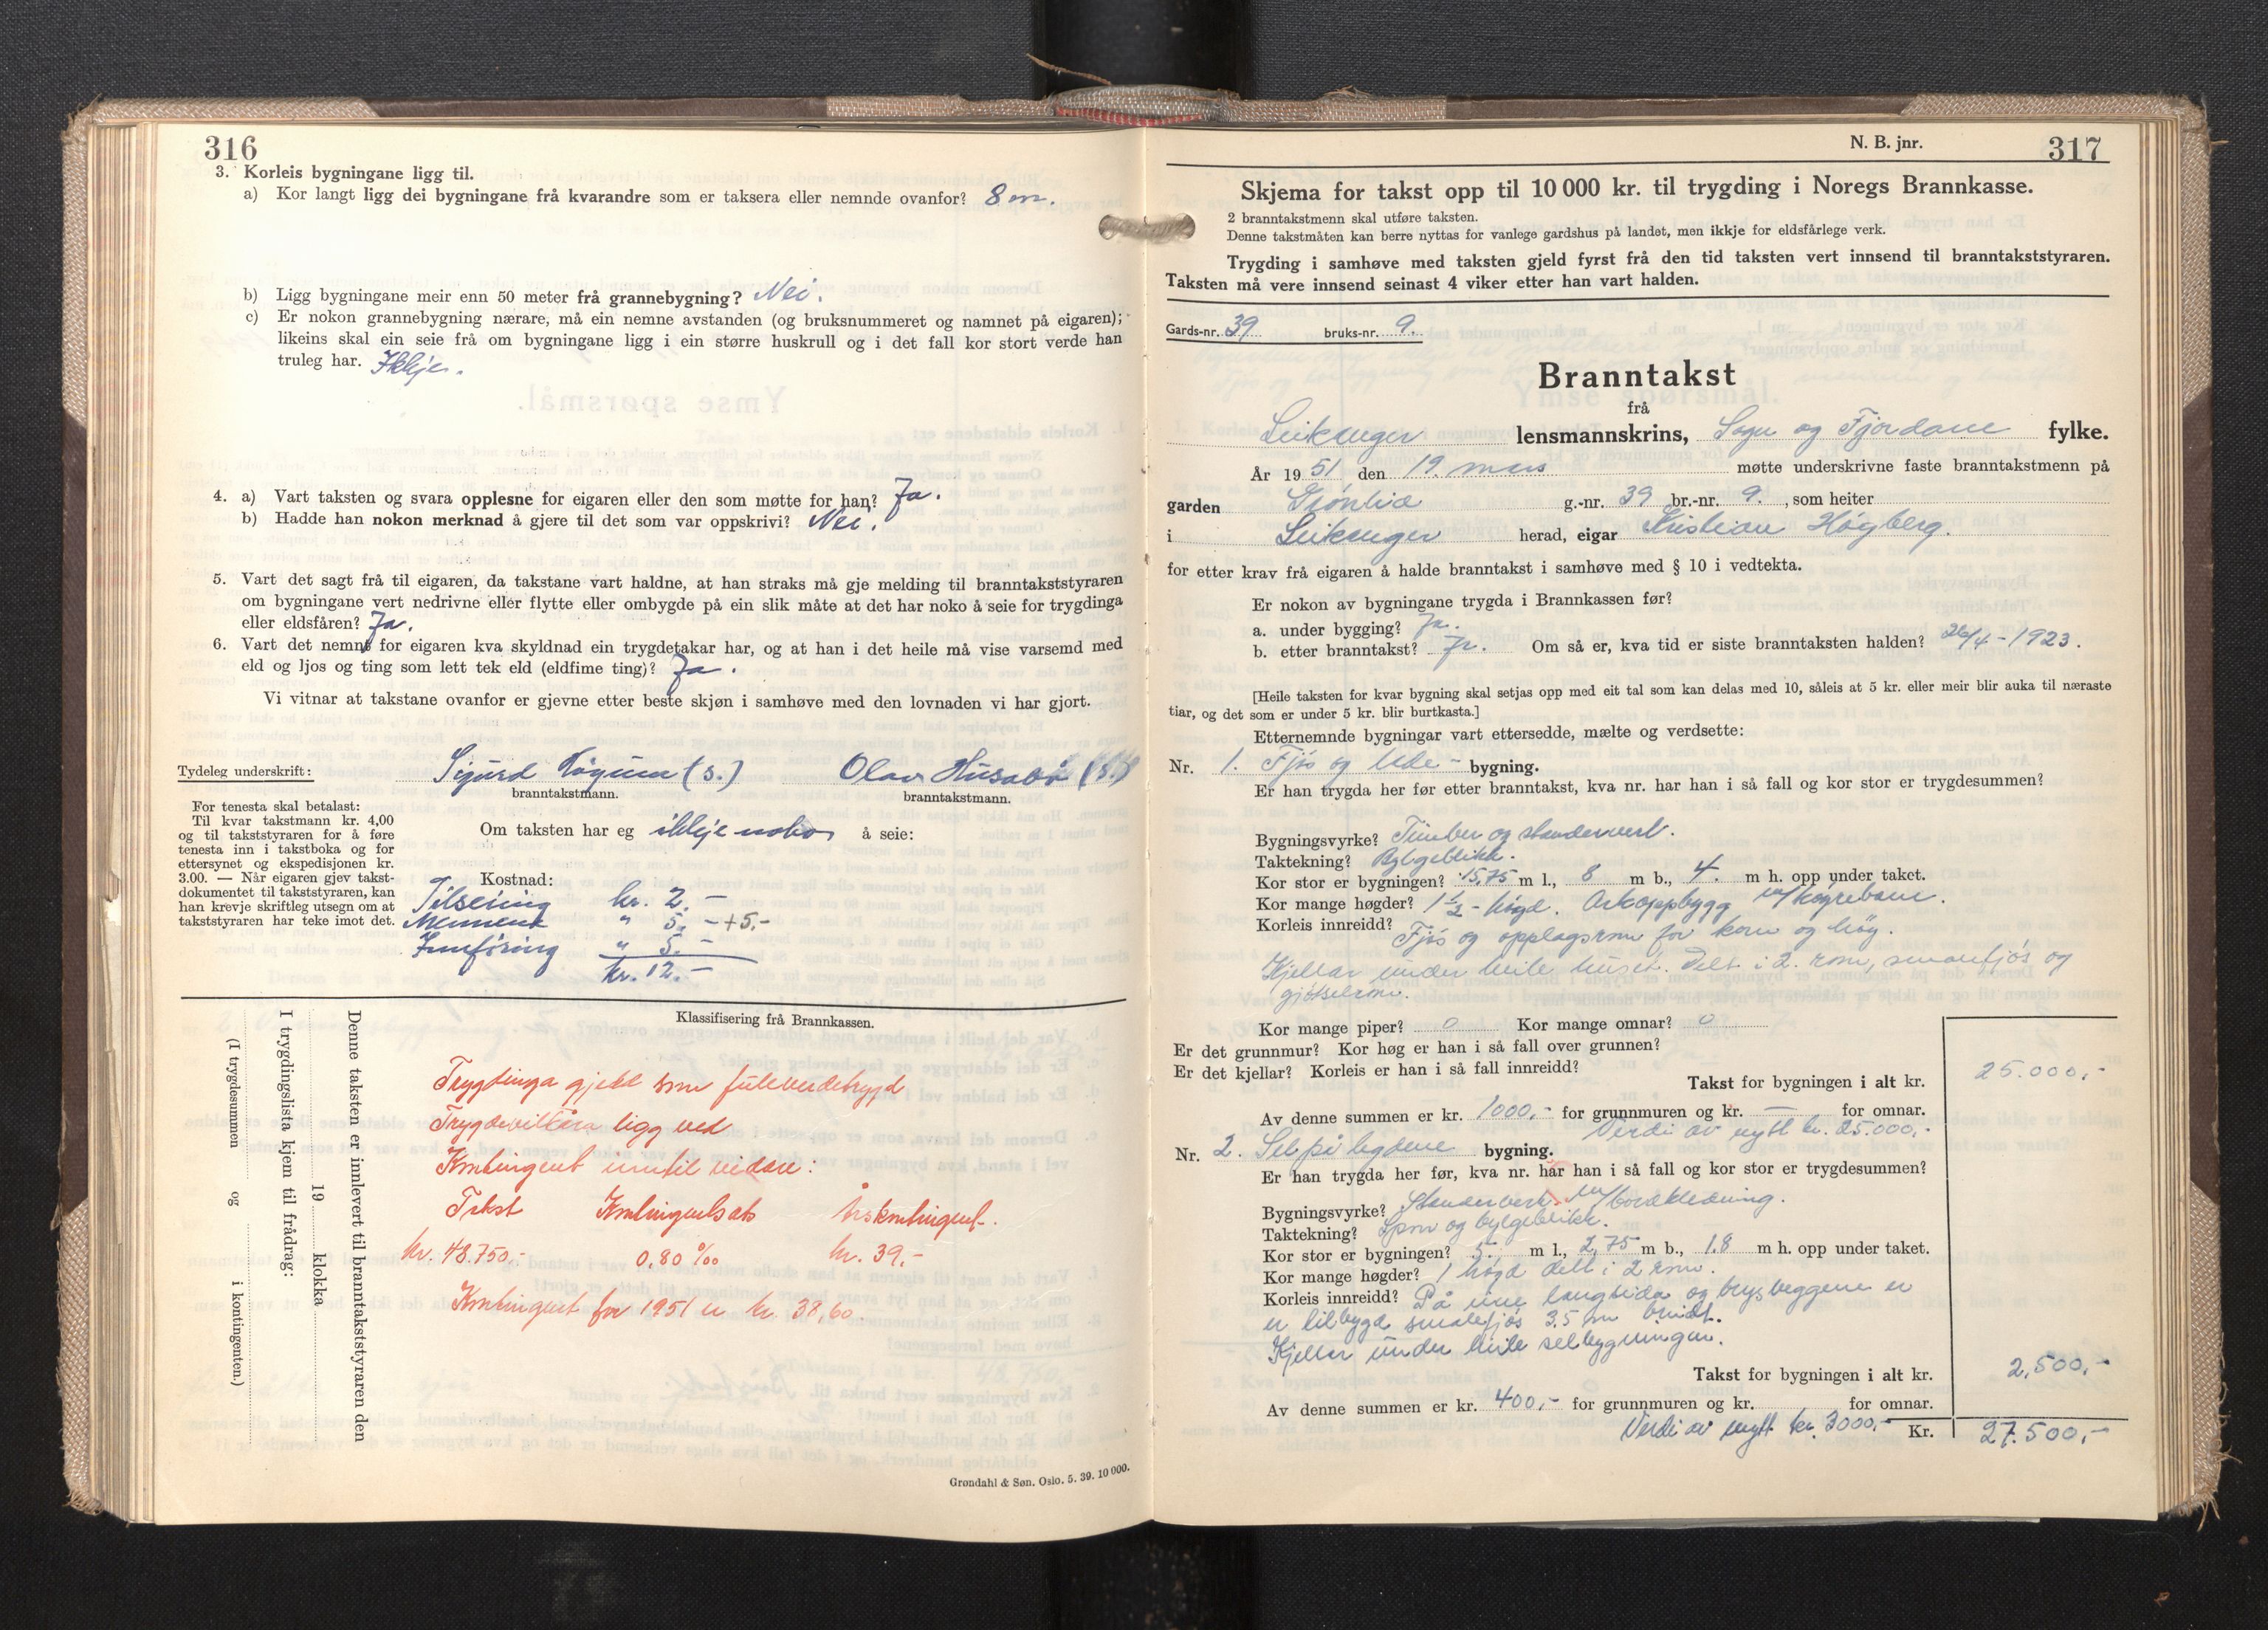 316
3. Korleis bygningane ligg til.
a) Kor langt ligg dei bygningane frå kvarandre som er taksera eller nemnde ovanfor? 8 m.
b) Ligg bygningane meir enn 50 meter frå grannebygning? Nei.
c) Er nokon grannebygning nærare, må ein nemne avstanden (og bruksnummeret og namnet på eigaren);
likeins skal ein seie frå om bygningane ligg i ein større huskrull og i det fall kor stort verde han
truleg har. Ikkje.
4. a) Vart taksten og svara opplesne for eigaren eller den som møtte for han? Ja.
b) Hadde han nokon merknad å gjere til det som var oppskrivi? Nei.
5. Vart det sagt frå til eigaren, da takstane vart haldne, at han straks må gje melding til branntakststyraren
om bygningane vert nedrivne eller flytte eller ombygde på ein slik måte at det har noko å seie for trygdinga
eller eldsfåren? Ja.
6. Vart det nemnt for eigaren kva skyldnad ein trygdetakar har, og at han i det heile må vise varsemd med
eld og ljos og ting som lett tek eld (eldfime ting)? Ja.
Vi vitnar at takstane ovanfor er gjevne etter beste skjøn i samhøve med den lovnaden vi har gjort.
Tydeleg underskrift: Sjurd (s.) Olav Husabø (s.)
branntakstmann. branntakstmann.
For tenesta skal betalast:
Til kvar takstmann kr. 4,00
og til takststyraren for å føre
tenesta inn i takstboka og for
ettersynet og ekspedisjonen kr.
3.00. — Når eigaren gjev takst-
dokumentet til takststyraren, kan
han krevje skriftleg utsegn om at
takststyraren har teke imot det.
Om taksten har eg ikkje noko å seie:
Kostnad:
Tilseiing kr. 2.-
Mennene " 5.- +5,-
Innføring " 5.-
kr. 12.-
Klassifisering frå Brannkassen.
Trygdinga gjeld som fullverdetrygd
Trygdevilkåra ligg ved
Kontingent inntil vidare:
Takst Kontingentsats Årskontingent.
kr. 48.750,- 0,80 ‰ kr. 39,-
Kontingent for 1951 er kr. 38,60
Denne taksten er innlevert til branntakststyraren den
19 klokka
I trygdingslista kjem til frådrag:
(I trygdesummen og i kontingenten.)
Grøndahl & Søn. Oslo. 5. 39. 10 000.
N. B. jnr. 317
Skjema for takst opp til 10 000 kr. til trygding i Noregs Brannkasse.
2 branntakstmenn skal utføre taksten.
Denne takstmåten kan berre nyttas for vanlege gardshus på landet, men ikkje for eldsfårlege verk.
Trygding i samhøve med taksten gjeld fyrst frå den tid taksten vert innsend til branntakststyraren.
Taksten må vere innsend seinast 4 viker etter han vart halden.
Gards-nr. 39 bruks-nr. 9.
Branntakst
frå
Leikanger lensmannskrins, Sogn og Fjordane fylke.
År 1951 den 19. mars møtte underskrivne faste branntakstmenn på
garden Grønlid g.-nr. 39 br.-nr. 9. , som heiter
i Leikanger herad, eigar Kristian Høgberg.
for etter krav frå eigaren å halde branntakst i samhøve med § 10 i vedtekta.
Er nokon av bygningane trygda i Brannkassen før?
a. under bygging? Ja.
b. etter branntakst? Ja. Om så er, kva tid er siste branntaksten halden? 26/4 - 1923.
[Heile taksten for kvar bygning skal setjas opp med eit tal som kan delas med 10, såleis at 5 kr. eller meir blir auka til næraste
tiar, og det som er under 5 kr. blir burtkasta.]
Etternemnde bygningar vart ettersedde, mælte og verdsette:
Nr. 1. Fjøs og løde - bygning.
Er han trygda her før etter branntakst, kva nr. har han i så fall og kor stor er trygdesummen?
Bygningsvyrke? Timber og standerverk.
Taktekning? Bylgeblikk.
Kor stor er bygningen? 15,75 m l., 8 m b., 4. m h. opp under taket.
Kor mange høgder? 1 1/2 - høgd. Arkoppbygg m/køyrebane.
Korleis innreidd? Fjøs og opplagsrom for korn og høy.
Kjellar under heile huset. Delt i 2. rom, smaafjøs og
gjødselrom.
Kor mange piper? 0 Kor mange omnar? 0
Er det grunnmur? Kor høg er han i så fall over grunnen?
Er det kjellar? Korleis er han i så fall innreidd?
Takst for bygningen i alt kr. 25.000,-
Av denne summen er kr. 1000,- for grunnmuren og kr. — for omnar.
Verdi av nytt kr. 25.000,-
Nr. 2. Sel på legdene bygning.
Er han trygda her før, kva nr. har han i så fall og kor stor er trygdesummen?
Bygningsvyrke? Standerverk m/bordkledning.
Taktekning? Spon og bylgeblikk.
Kor stor er bygningen? 5. m l., 2,75 m b., 1.8 m h. opp under taket.
Kor mange høgder? 1 høgd delt i 2 rom.
Korleis innreidd? På eine langsida og brystveggene er
er tilbygd smalefjøs 3.5 m breidt.
Kjellar under heile selbygningen.
Takst for bygningen i alt kr. 2,500,-
Av denne summen er kr. 400,- for grunnmuren og kr. for omnar.
Verdi av nytt kr. 3000,- Kr. 27.500,-